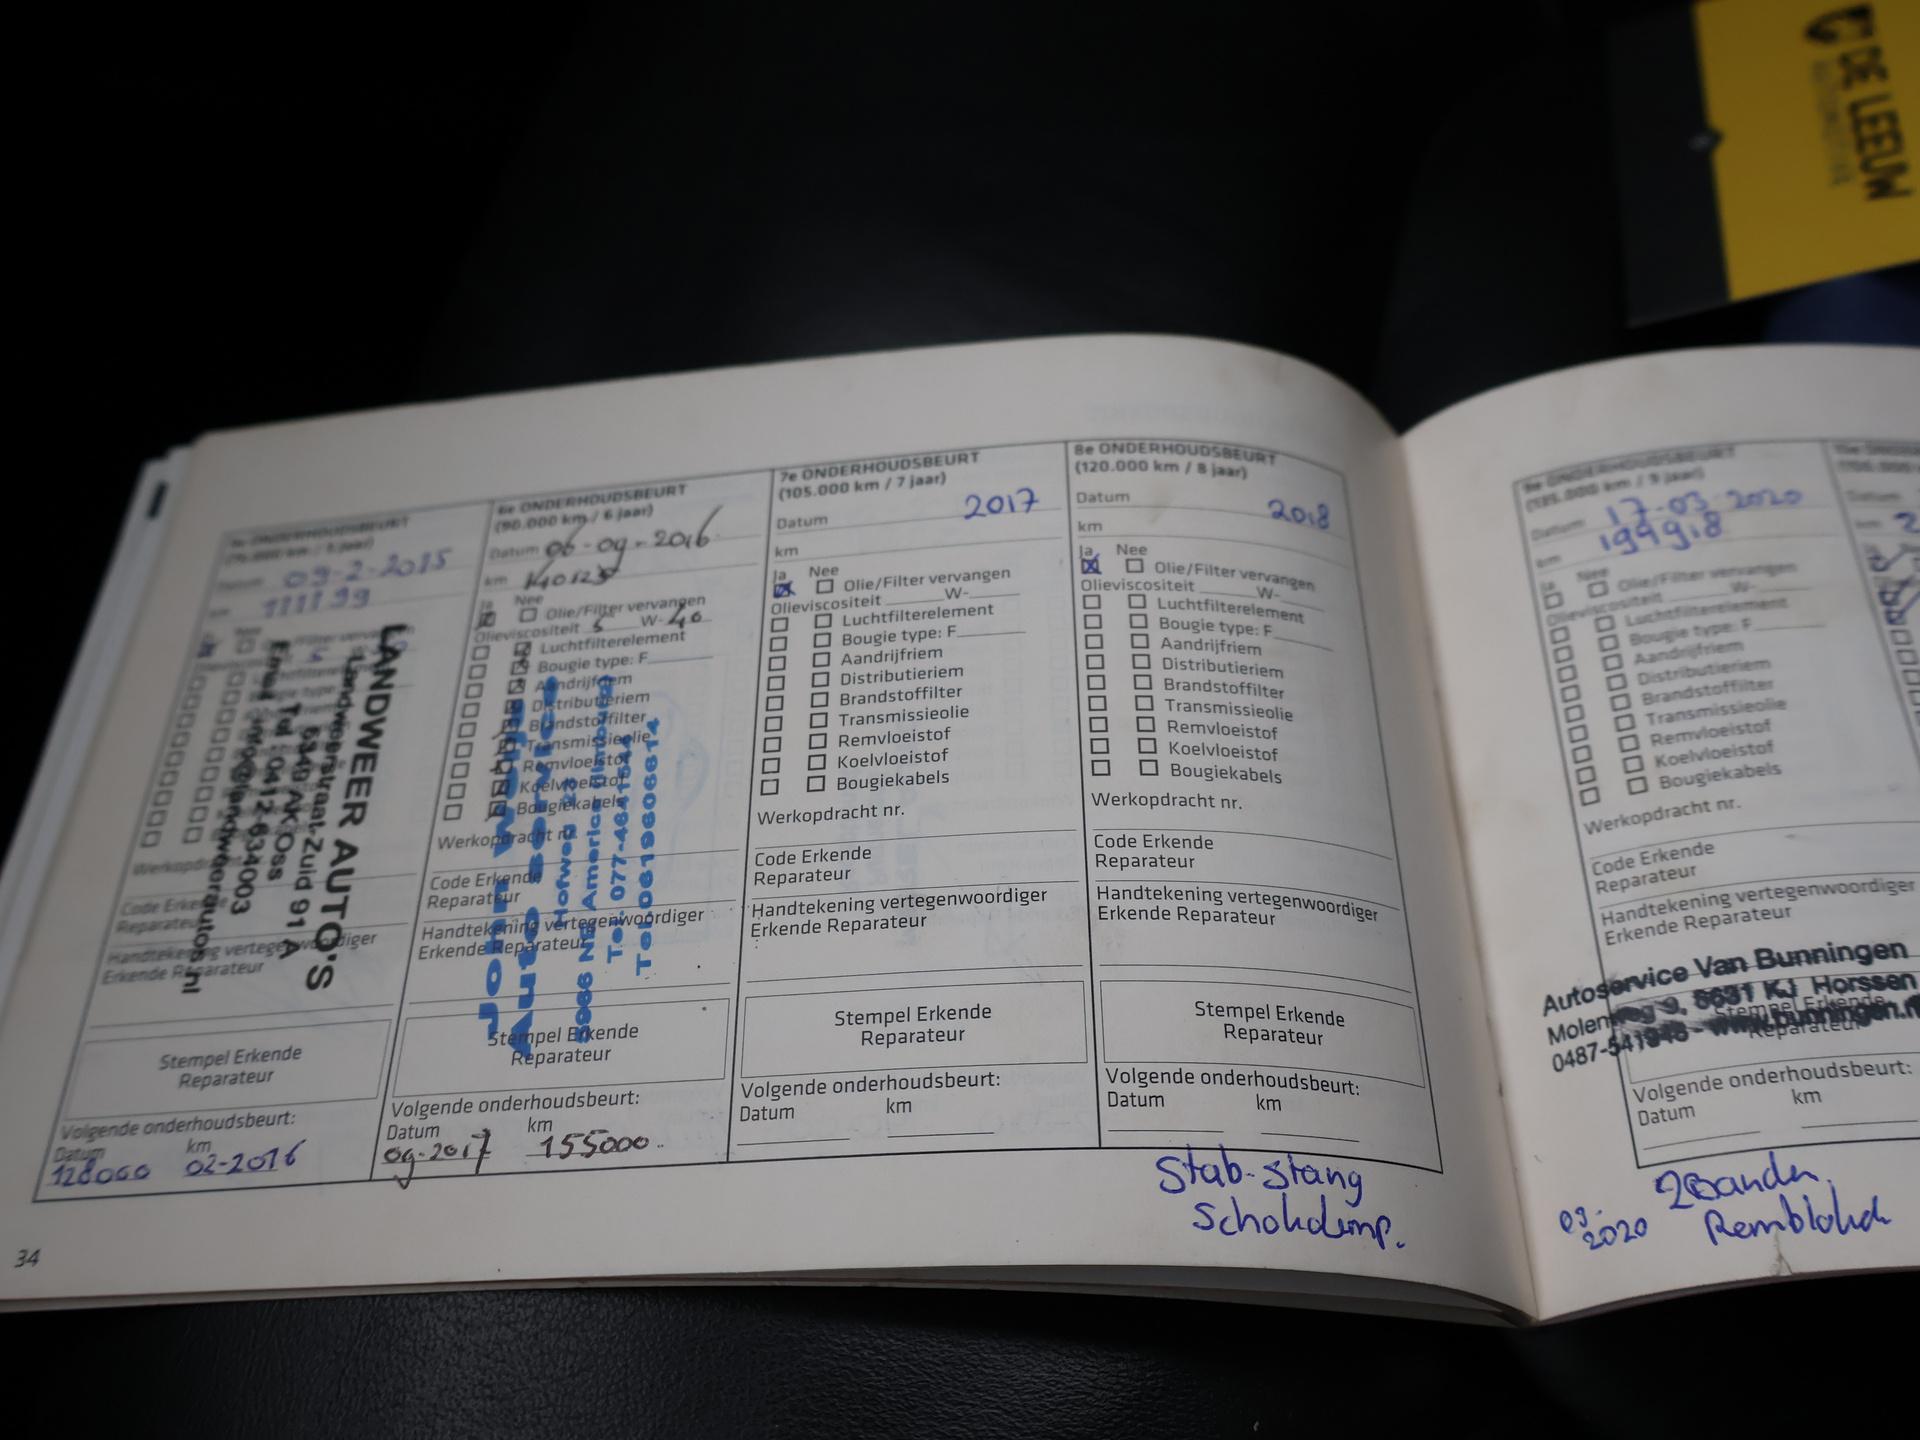 DE LEEUW
5e ONDERHOUDSBEURT
(75.000 km / 5 jaar)
Datum 09-2-2015
km 111199
Ja Nee
Olie/Filter vervangen
LANDWEER AUTO'S
Landweerstraat-Zuid 91 A
5349 AK Oss
Tel. 0412-634003
Werkopdracht
Code Erkende
Reparateur
Handtekening vertegenwoordiger
Erkende Reparateur
Stempel Erkende
Reparateur
Volgende onderhoudsbeurt:
Datum km
128000 02-2016
34
6e ONDERHOUDSBEURT
(90.000 km / 6 jaar)
Datum 06-09-2016
km
Ja Nee
Olie/Filter vervangen
Olieviscositeit 5 W-40
Luchtfilterelement
Bougie type: F
Aandrijfriem
Distributieriem
Brandstoffilter
Transmissieolie
Remvloeistof
Koelvloeistof
Bougiekabels
Werkopdracht nr.
Code Erkende
Reparateur
Handtekening vertegenwoordiger
Erkende Reparateur
Auto service
Hofweg
5966 NE America (limburg)
Stempel Erkende
Reparateur
Volgende onderhoudsbeurt:
Datum km
09-2017 155000
7e ONDERHOUDSBEURT
(105.000 km / 7 jaar)
Datum 2017
km
Ja Nee
Olie/Filter vervangen
Olieviscositeit W-
Luchtfilterelement
Bougie type: F
Aandrijfriem
Distributieriem
Brandstoffilter
Transmissieolie
Remvloeistof
Koelvloeistof
Bougiekabels
Werkopdracht nr.
Code Erkende
Reparateur
Handtekening vertegenwoordiger
Erkende Reparateur
Stempel Erkende
Reparateur
Volgende onderhoudsbeurt:
Datum km
8e ONDERHOUDSBEURT
(120.000 km / 8 jaar)
Datum 2018
km
Ja Nee
Olie/Filter vervangen
Olieviscositeit W-
Luchtfilterelement
Bougie type: F
Aandrijfriem
Distributieriem
Brandstoffilter
Transmissieolie
Remvloeistof
Koelvloeistof
Bougiekabels
Werkopdracht nr.
Code Erkende
Reparateur
Handtekening vertegenwoordiger
Erkende Reparateur
Stempel Erkende
Reparateur
Volgende onderhoudsbeurt:
Datum km
Stab-stang
Schokdemp.
9e ONDERHOUDSBEURT
(135.000 km / 9 jaar)
Datum 17-03-2020
km 199918
Ja Nee
Olie/Filter vervangen
Olieviscositeit W-
Luchtfilterelement
Bougie type: F
Aandrijfriem
Distributieriem
Brandstoffilter
Transmissieolie
Remvloeistof
Koelvloeistof
Bougiekabels
Werkopdracht nr.
Code Erkende
Reparateur
Handtekening vertegenwoordiger
Erkende Reparateur
Autoservice Van Bunningen
Molenweg 9, 6631 KJ Horssen
0487-541948 - www.bunningen.n
Stempel Erkende
Reparateur
Volgende onderhoudsbeurt:
Datum km
2020
2 Banden